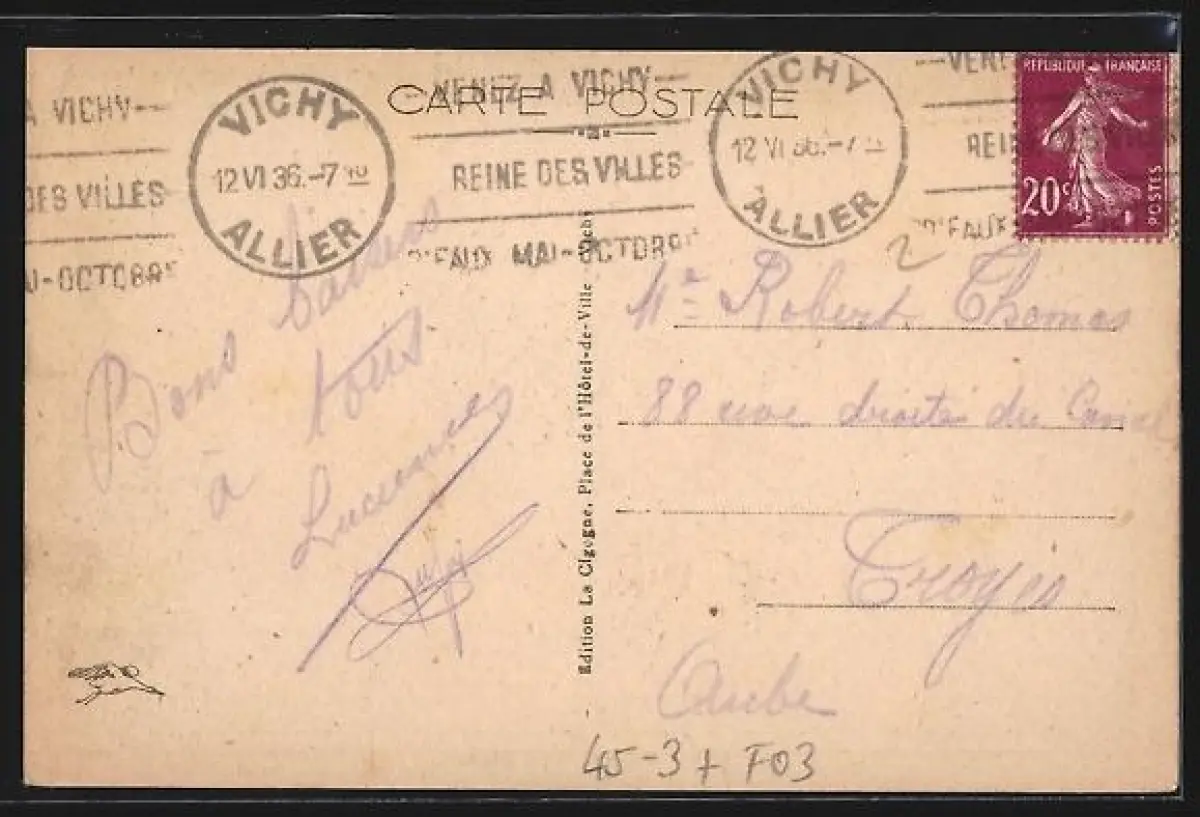 CARTE POSTALE
A VICHY
DES VILLES
AI-OCTOBRE
VICHY
12 VI 36.-7
ALLIER
VENEZ A VICHY
REINE DES VILLES
D'EAUX MAI-OCTOBRE
VICHY
12 VI 36.-7
ALLIER
VENE
REI
D'EAUX
REPUBLIQUE FRANÇAISE
20c
POSTES
Bons baisers
à tous
Lucienne
Édition La Cigogne, Place de l'Hôtel-de-Ville
2
Robert Thomas
88 rive droite du Canal
Troyes
Aube
45-3+ F03